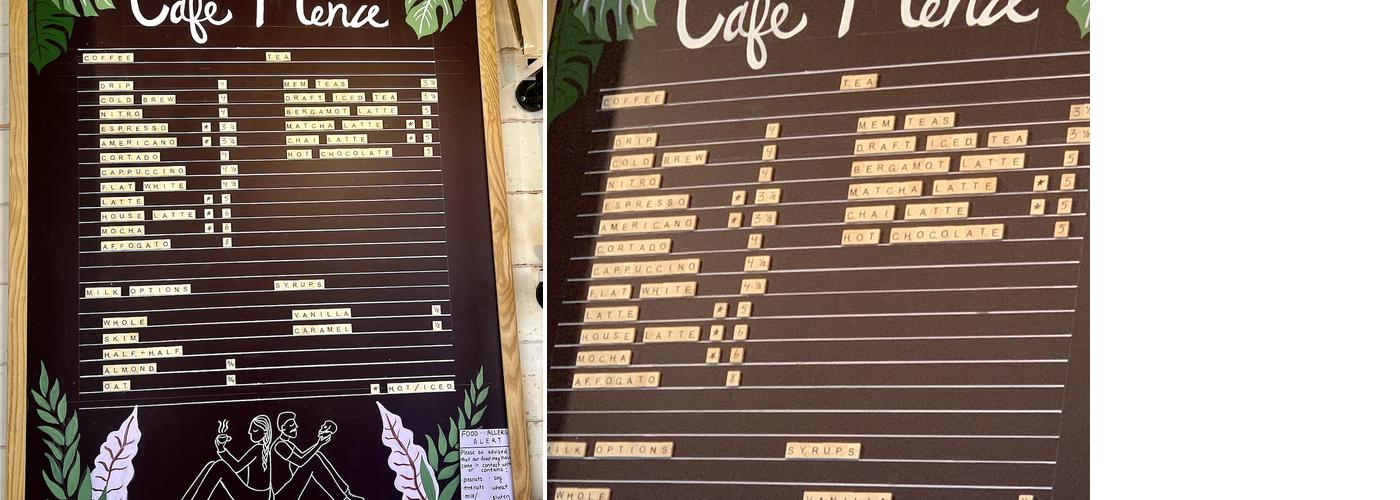 Cafe Menu
COFFEE
DRIP 4
COLD BREW 4
NITRO 4
ESPRESSO * 3 ½
AMERICANO * 3 ½
CORTADO 4
CAPPUCCINO 4 ½
FLAT WHITE 4 ½
LATTE * 5
HOUSE LATTE * 6
MOCHA * 6
AFFOGATO 8
TEA
MEM TEAS 3 ½
DRAFT ICED TEA 3 ½
BERGAMOT LATTE 5
MATCHA LATTE * 5
CHAI LATTE * 5
HOT CHOCOLATE 5
MILK OPTIONS
WHOLE
SKIM
HALF+HALF
ALMOND ¾
OAT ¾
SYRUPS
VANILLA ½
CARAMEL ½
* HOT/ICED
FOOD ALLERGY
ALERT
Please be advised
that our food may have
come in contact with
or contains:
peanuts · soy
tree nuts · wheat
milk/ · gluten
Cafe Menu
COFFEE
DRIP 4
COLD BREW 4
NITRO 4
ESPRESSO * 3 ½
AMERICANO * 3 ½
CORTADO 4
CAPPUCCINO 4 ½
FLAT WHITE 4 ½
LATTE * 5
HOUSE LATTE * 6
MOCHA * 6
AFFOGATO 8
TEA
MEM TEAS 3 ½
DRAFT ICED TEA 3 ½
BERGAMOT LATTE 5
MATCHA LATTE * 5
CHAI LATTE * 5
HOT CHOCOLATE 5
MILK OPTIONS
WHOLE
SYRUPS
VANILLA